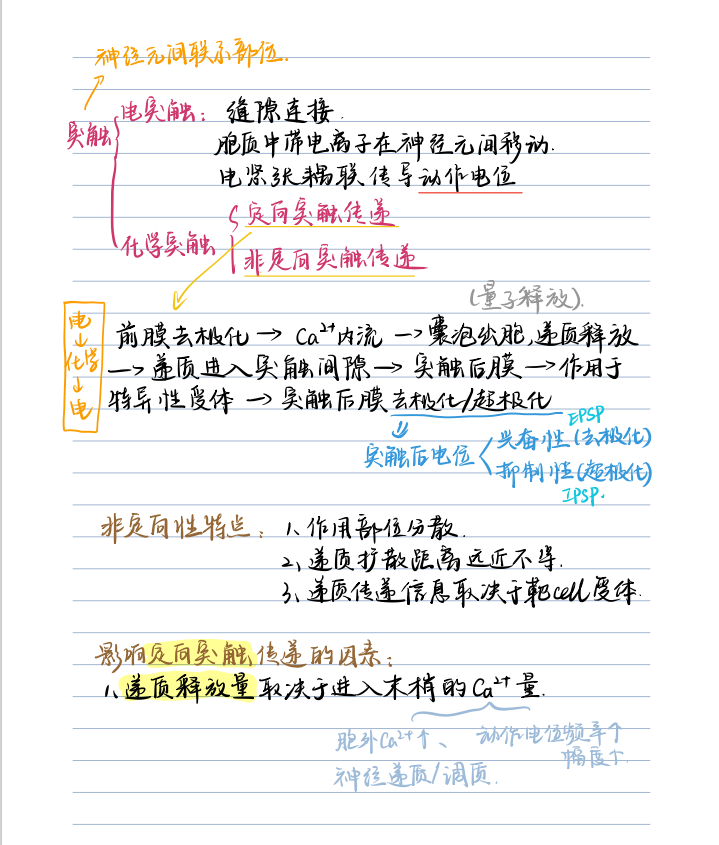 神经元间联系部位.
突触
电突触：缝隙连接.
胞质中带电离子在神经元间移动.
电紧张耦联传导动作电位
化学突触
定向突触传递
非定向突触传递
(量子释放).
电→化学→电
前膜去极化 → Ca²⁺内流 → 囊泡出胞,递质释放
→ 递质进入突触间隙 → 突触后膜 → 作用于
特异性受体 → 突触后膜去极化/超极化
EPSP
突触后电位
兴奋性(去极化)
抑制性(超极化)
IPSP.
非定向性特点：1、作用部位分散.
2、递质扩散距离远近不等.
3、递质传递信息取决于靶cell受体.
影响定向突触传递的因素：
1、递质释放量取决于进入末梢的Ca²⁺量.
胞外Ca²⁺↑、动作电位频率↑
幅度↑.
神经递质/调质.